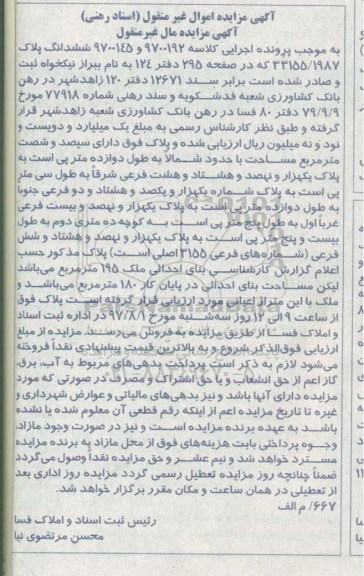 آگهی مزایده اموال غیر منقول (اسناد رهنی)
آگهی مزایده مال غیرمنقول
به موجب پرونده اجرایی کلاسه ۹۷۰۰۱۹۲ و ۹۷۰۰۱۴۵ ششدانگ پلاک
۳۳۱۵۵/۱۹۸۷ که در صفحه ۲۹۵ دفتر ۱۲۴ به نام ببراز نیکخواه ثبت
و صادر شده است برابر سند ۱۲۶۷۱ دفتر ۱۲۰ زاهدشهر در رهن
بانک کشاورزی شعبه فدشکویه و سند رهنی شماره ۷۷۹۱۸ مورخ
۷۹/۹/۹ دفتر ۸۰ فسا در رهن بانک کشاورزی شعبه زاهدشهر قرار
گرفته و طبق نظر کارشناس رسمی به مبلغ یک میلیارد و دویست و
نود و نه میلیون ریال ارزیابی شده و پلاک فوق دارای سیصد و شصت
مترمربع مساحت با حدود شمالاً به طول دوازده متر پی است به
پلاک یکهزار و نهصد و هشتاد و هشت فرعی شرقاً به طول سی متر
پی است به پلاک شماره یکهزار و یکصد و هشتاد و دو فرعی جنوباً
به طول دوازده متر پی است به پلاک یکهزار و نهصد و بیست فرعی
غرباً اول به طول پنج متر پی است به کوچه ده متری دوم به طول
بیست و پنج متر پی است به پلاک یکهزار و نهصد و هشتاد و شش
فرعی (شماره‌های فرعی ۳۱۵۵ اصلی است) پلاک مذکور حسب
اعلام گزارش کارشناسی بنای احداثی ملک ۱۹۵ مترمربع می‌باشد
لیکن مساحت بنای احداثی در پایان کار ۱۸۰ مترمربع می‌باشد و
ملک با این متراژ اعیانی مورد ارزیابی قرار گرفته است پلاک فوق
از ساعت ۹ الی ۱۲ روز سه‌شنبه مورخ ۹۷/۸/۱ در اداره ثبت اسناد
و املاک فسا از طریق مزایده به فروش می‌رسد. مزایده از مبلغ
ارزیابی فوق‌الذکر شروع و به بالاترین قیمت پیشنهادی نقداً فروخته
می‌شود لازم به ذکر است پرداخت بدهی‌های مربوط به آب، برق،
گاز اعم از حق انشعاب و یا حق اشتراک و مصرف در صورتی که مورد
مزایده دارای آنها باشد و نیز بدهی‌های مالیاتی و عوارض شهرداری و
غیره تا تاریخ مزایده اعم از اینکه رقم قطعی آن معلوم شده یا نشده
باشد به عهده برنده مزایده است و نیز در صورت وجود مازاد،
وجوه پرداختی بابت هزینه‌های فوق از محل مازاد به برنده مزایده
مسترد خواهد شد و نیم عشر و حق مزایده نقداً وصول می‌گردد
ضمناً چنانچه روز مزایده تعطیل رسمی گردد مزایده روز اداری بعد
از تعطیلی در همان ساعت و مکان مقرر برگزار خواهد شد.
۶۶۷/ م الف
رئیس ثبت اسناد و املاک فسا
محسن مرتضوی نیا